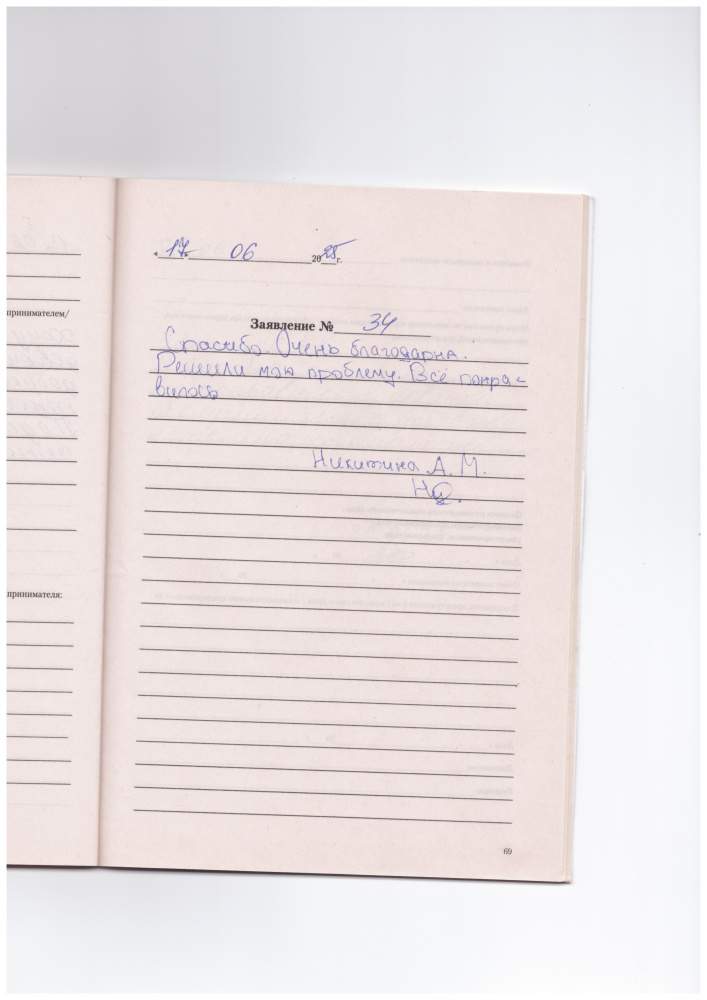 «17» 06 2025 г.
принимателем/
Заявление № 34
Спасибо. Очень благодарна.
Решили мою проблему. Всё понра-
вилось
Никитина А. М.
принимателя:
69